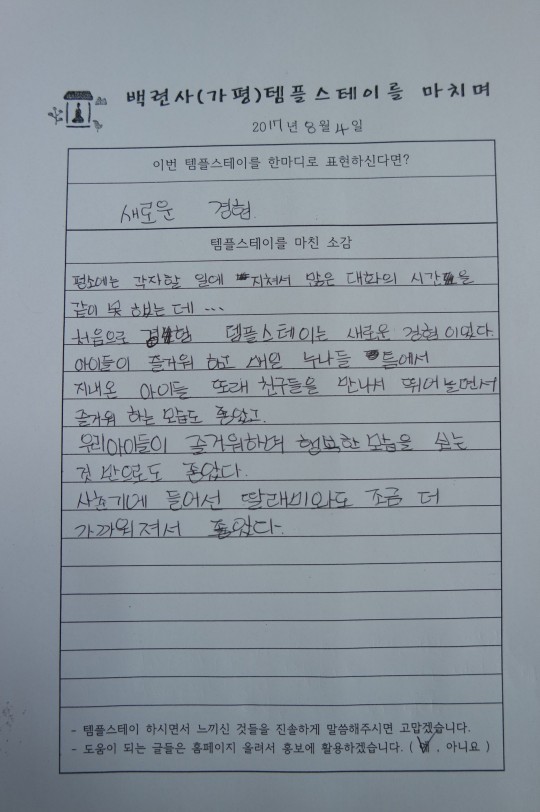 백련사(가평)템플스테이를 마치며
2017년 8월 4일
이번 템플스테이를 한마디로 표현하신다면?
새로운 경험.
템플스테이를 마친 소감
평소에는 각자할 일에 지쳐서 많은 대화의 시간을
같이 못 했는 데 ...
처음으로 경험한 템플스테이는 새로운 경험이었다.
아이들이 즐거워 하고 누나들 틈에서
지내온 아이들 또래 친구들을 만나서 뛰어 놀면서
즐거워 하는 모습도 좋았고.
우리아이들이 즐거워하며 행복한 모습을 보는
것 만으로도 좋았다.
사춘기에 들어선 딸래미와도 조금 더
가까워져서 좋았다.
- 템플스테이 하시면서 느끼신 것들을 진솔하게 말씀해주시면 고맙겠습니다.
- 도움이 되는 글들은 홈페이지 올려서 홍보에 활용하겠습니다. ( 예 , 아니요 )